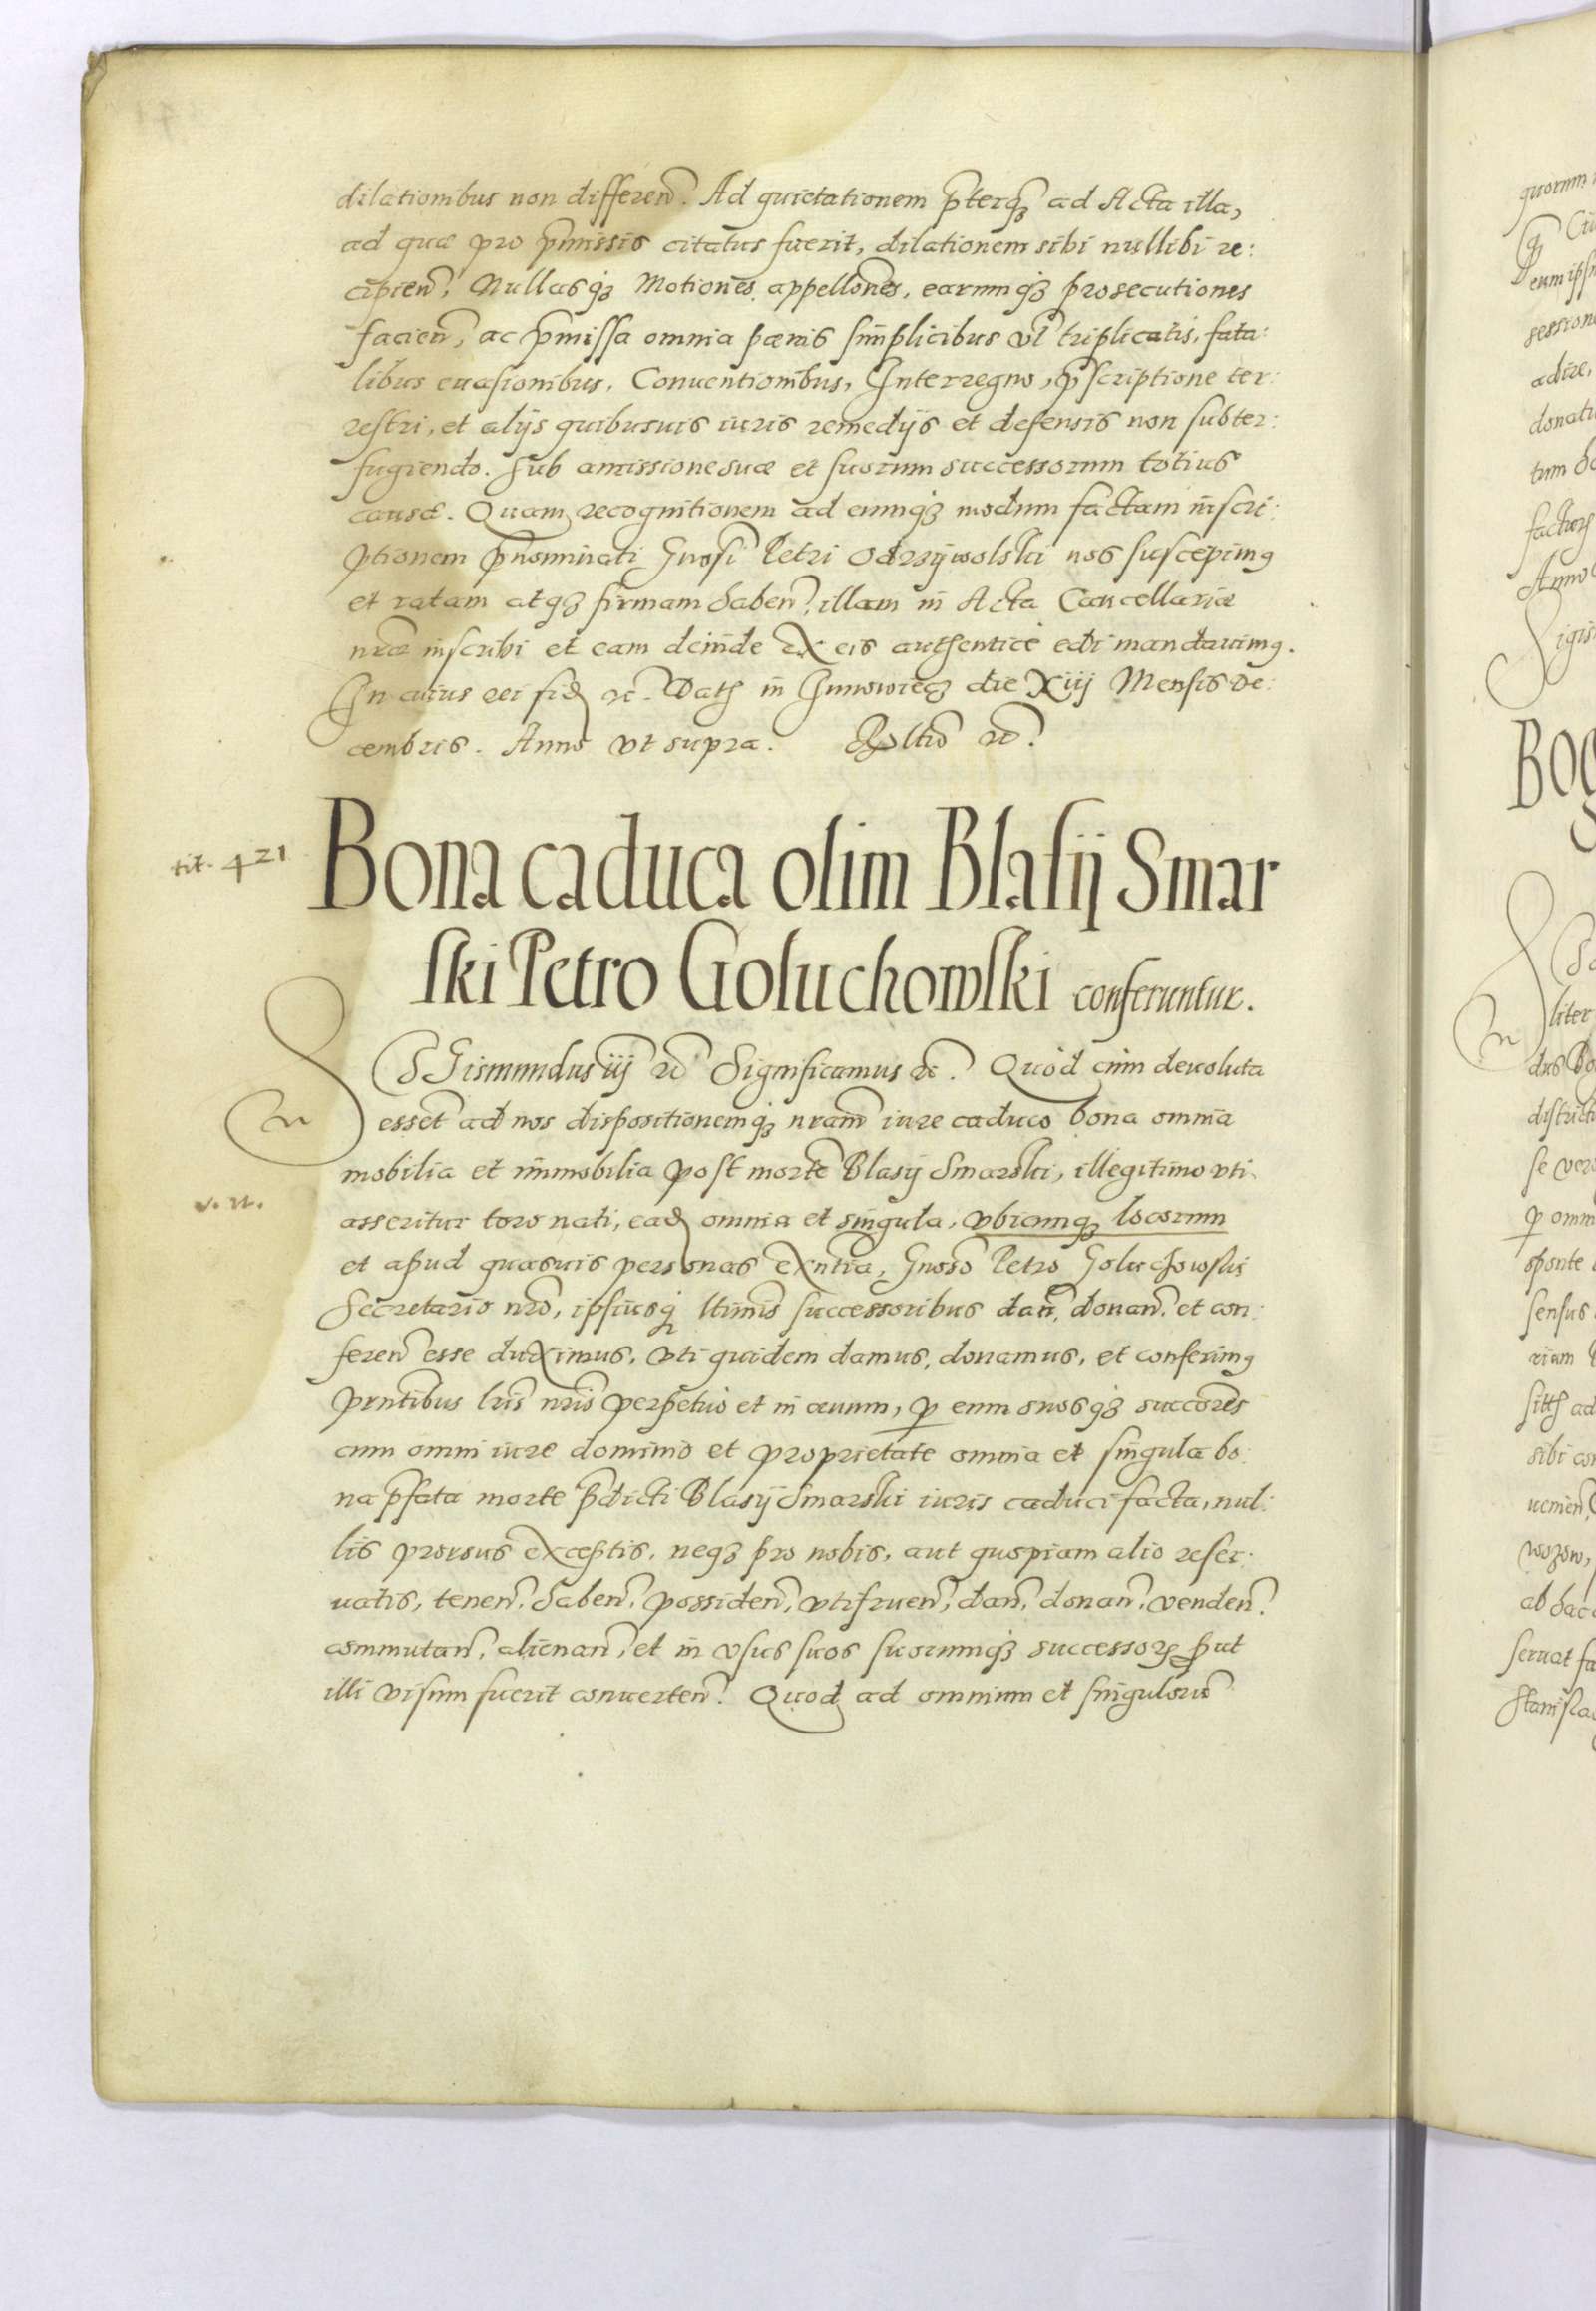 dilationibus non differen̄. Ad quietationem p̄terq̄ꝫ ad Acta illa,
ad quæ pro p̄missis citatus fuerit, dilationem sibi nullibi re:
cipien̄, Nullasqꝫ Motiones, appellōnes, earumqꝫ prosecutiones
facien̄, ac p̄missa omnia pænis simplicibus vl̄ triplicatis, fata:
libus euasionibus, Conuentionibus, Interregno, p̄scriptione ter:
restri, et alijs quibusuis iuris remedijs et defensis non subter:
fugiendo. Sub amissione suæ et suorum successorum totius
causæ. Quam recognitionem ad eumqꝫ modum factam inscri:
ptionem p̄nominati Gn̄osi Petri Odrzijwolski nos suscepimꝰ
et ratam atqꝫ firmam haben̄, illam in Acta Cancellariæ
nr̄æ inscribi et eam deinde ex eis authenticè edi mandauimꝰ.
In cuius rei fid) &c. Datꝭ in Junowiecꝫ die Xiij Mensis De:
cembris. Anno vt supra. &c.
tit. 421
Bona caduca olim Blasij Smar
ski Petro Goluchowski conferuntur.
SIGismundus iij &c Significamus &c. Quòd cum deuoluta
esset ad nos dispositionemqꝫ nr̄am iure caduco bona omnia
mobilia et immobilia post mortē Blasij Smarski, illegitimo vti
v. n.
asseritur toro nati, ead) omnia et singula, vbicumqꝫ locorum
et apud quasuis personas exn̄tia, Gn̄oso Petro Goluchowski
Secretario nr̄o, ipsiusqꝫ ltimis successoribus dan̄, donan̄, et con:
feren̄ esse duximus, vti quidem damus, donamus, et conferimꝰ
pn̄tibus lr̄is nr̄is perpetuò et in æuum, ꝑ eum suosqꝫ succōres
cum omni iure dominio et proprietate omnia et singula bo:
na p̄fata morte p̄dicti Blasij Smarski iuris caduci facta, nul:
lis prorsus exceptis, neqꝫ pro nobis, aut quopiam alio reser:
uatis, tenen̄, haben̄, possiden̄, vtifruen̄, dan̄, donan̄, venden̄.
commutan̄, alienan̄, et in vsus suos suorumqꝫ successorꝭ ꝓut
illi visum fuerit conuerten̄. Quod ad omnium et singulorū